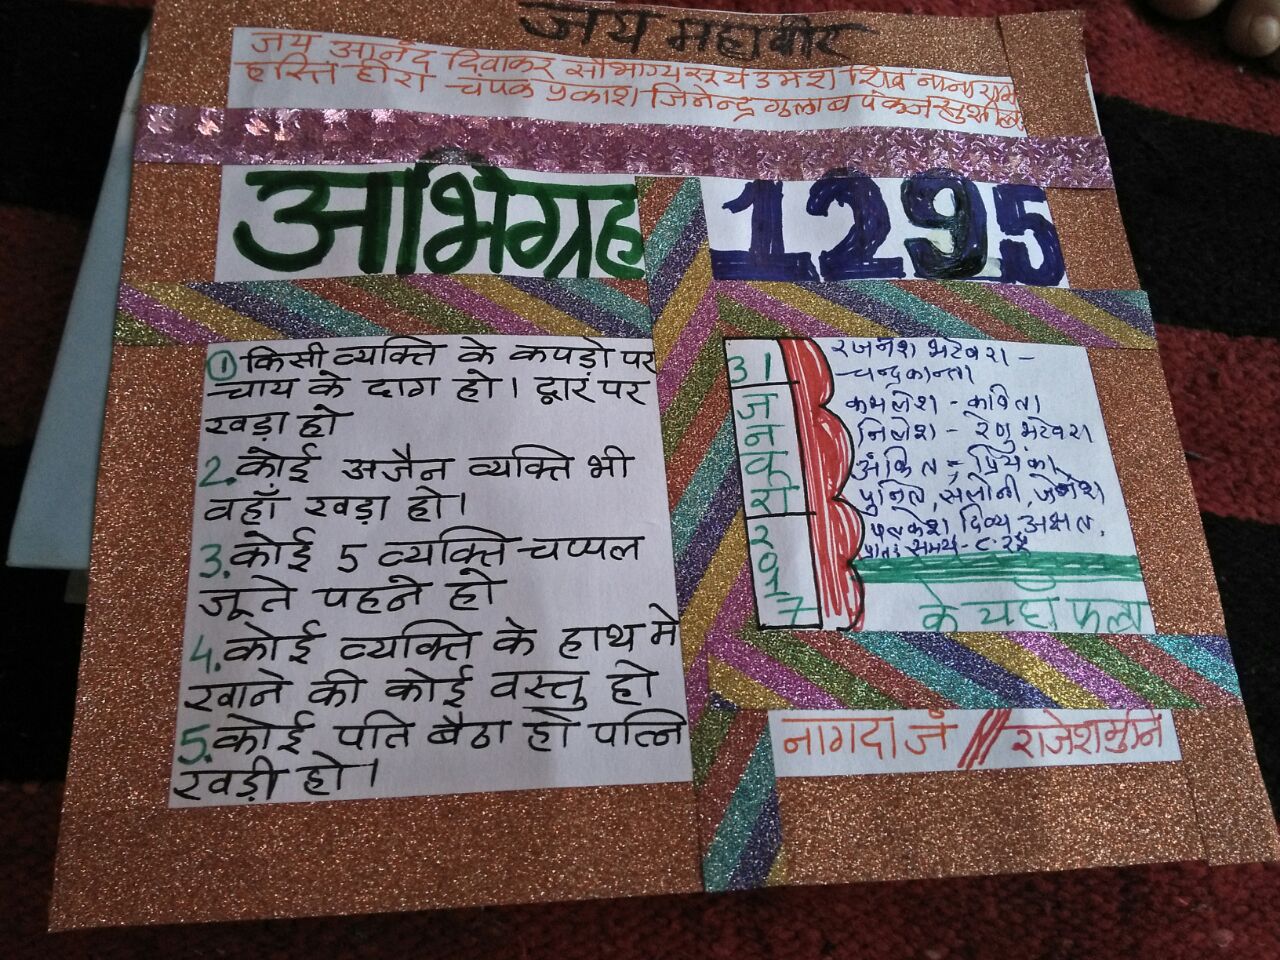 जय महावीर
जय आनंद दिवाकर सौभाग्य सूर्य उमेश शिव नाना राम
हस्ति हीरा चंपक प्रकाश जिनेन्द्र गुलाब पंकज सुशील
अभिग्रह 1295
① किसी व्यक्ति के कपड़ो पर
चाय के दाग हो। द्वार पर
खड़ा हो
2. कोई अजैन व्यक्ति भी
वहाँ खड़ा हो।
3. कोई 5 व्यक्ति चप्पल
जूते पहने हो
4. कोई व्यक्ति के हाथ मे
खाने की कोई वस्तु हो
5. कोई पति बैठा हो पत्नि
खड़ी हो।
31 जनवरी 2017
रजनेश भटेवरा -
चन्द्रकान्ता
कमलेश - कविता
निलेश - रेणु भटेवरा
अंकित - प्रियंका
पुनित, सलोनी, जेनेश
पलकेश, दिव्य, अक्षत,
समय - ८:२५
के यहाँ फला
नागदा जं /// राजेशमुनि